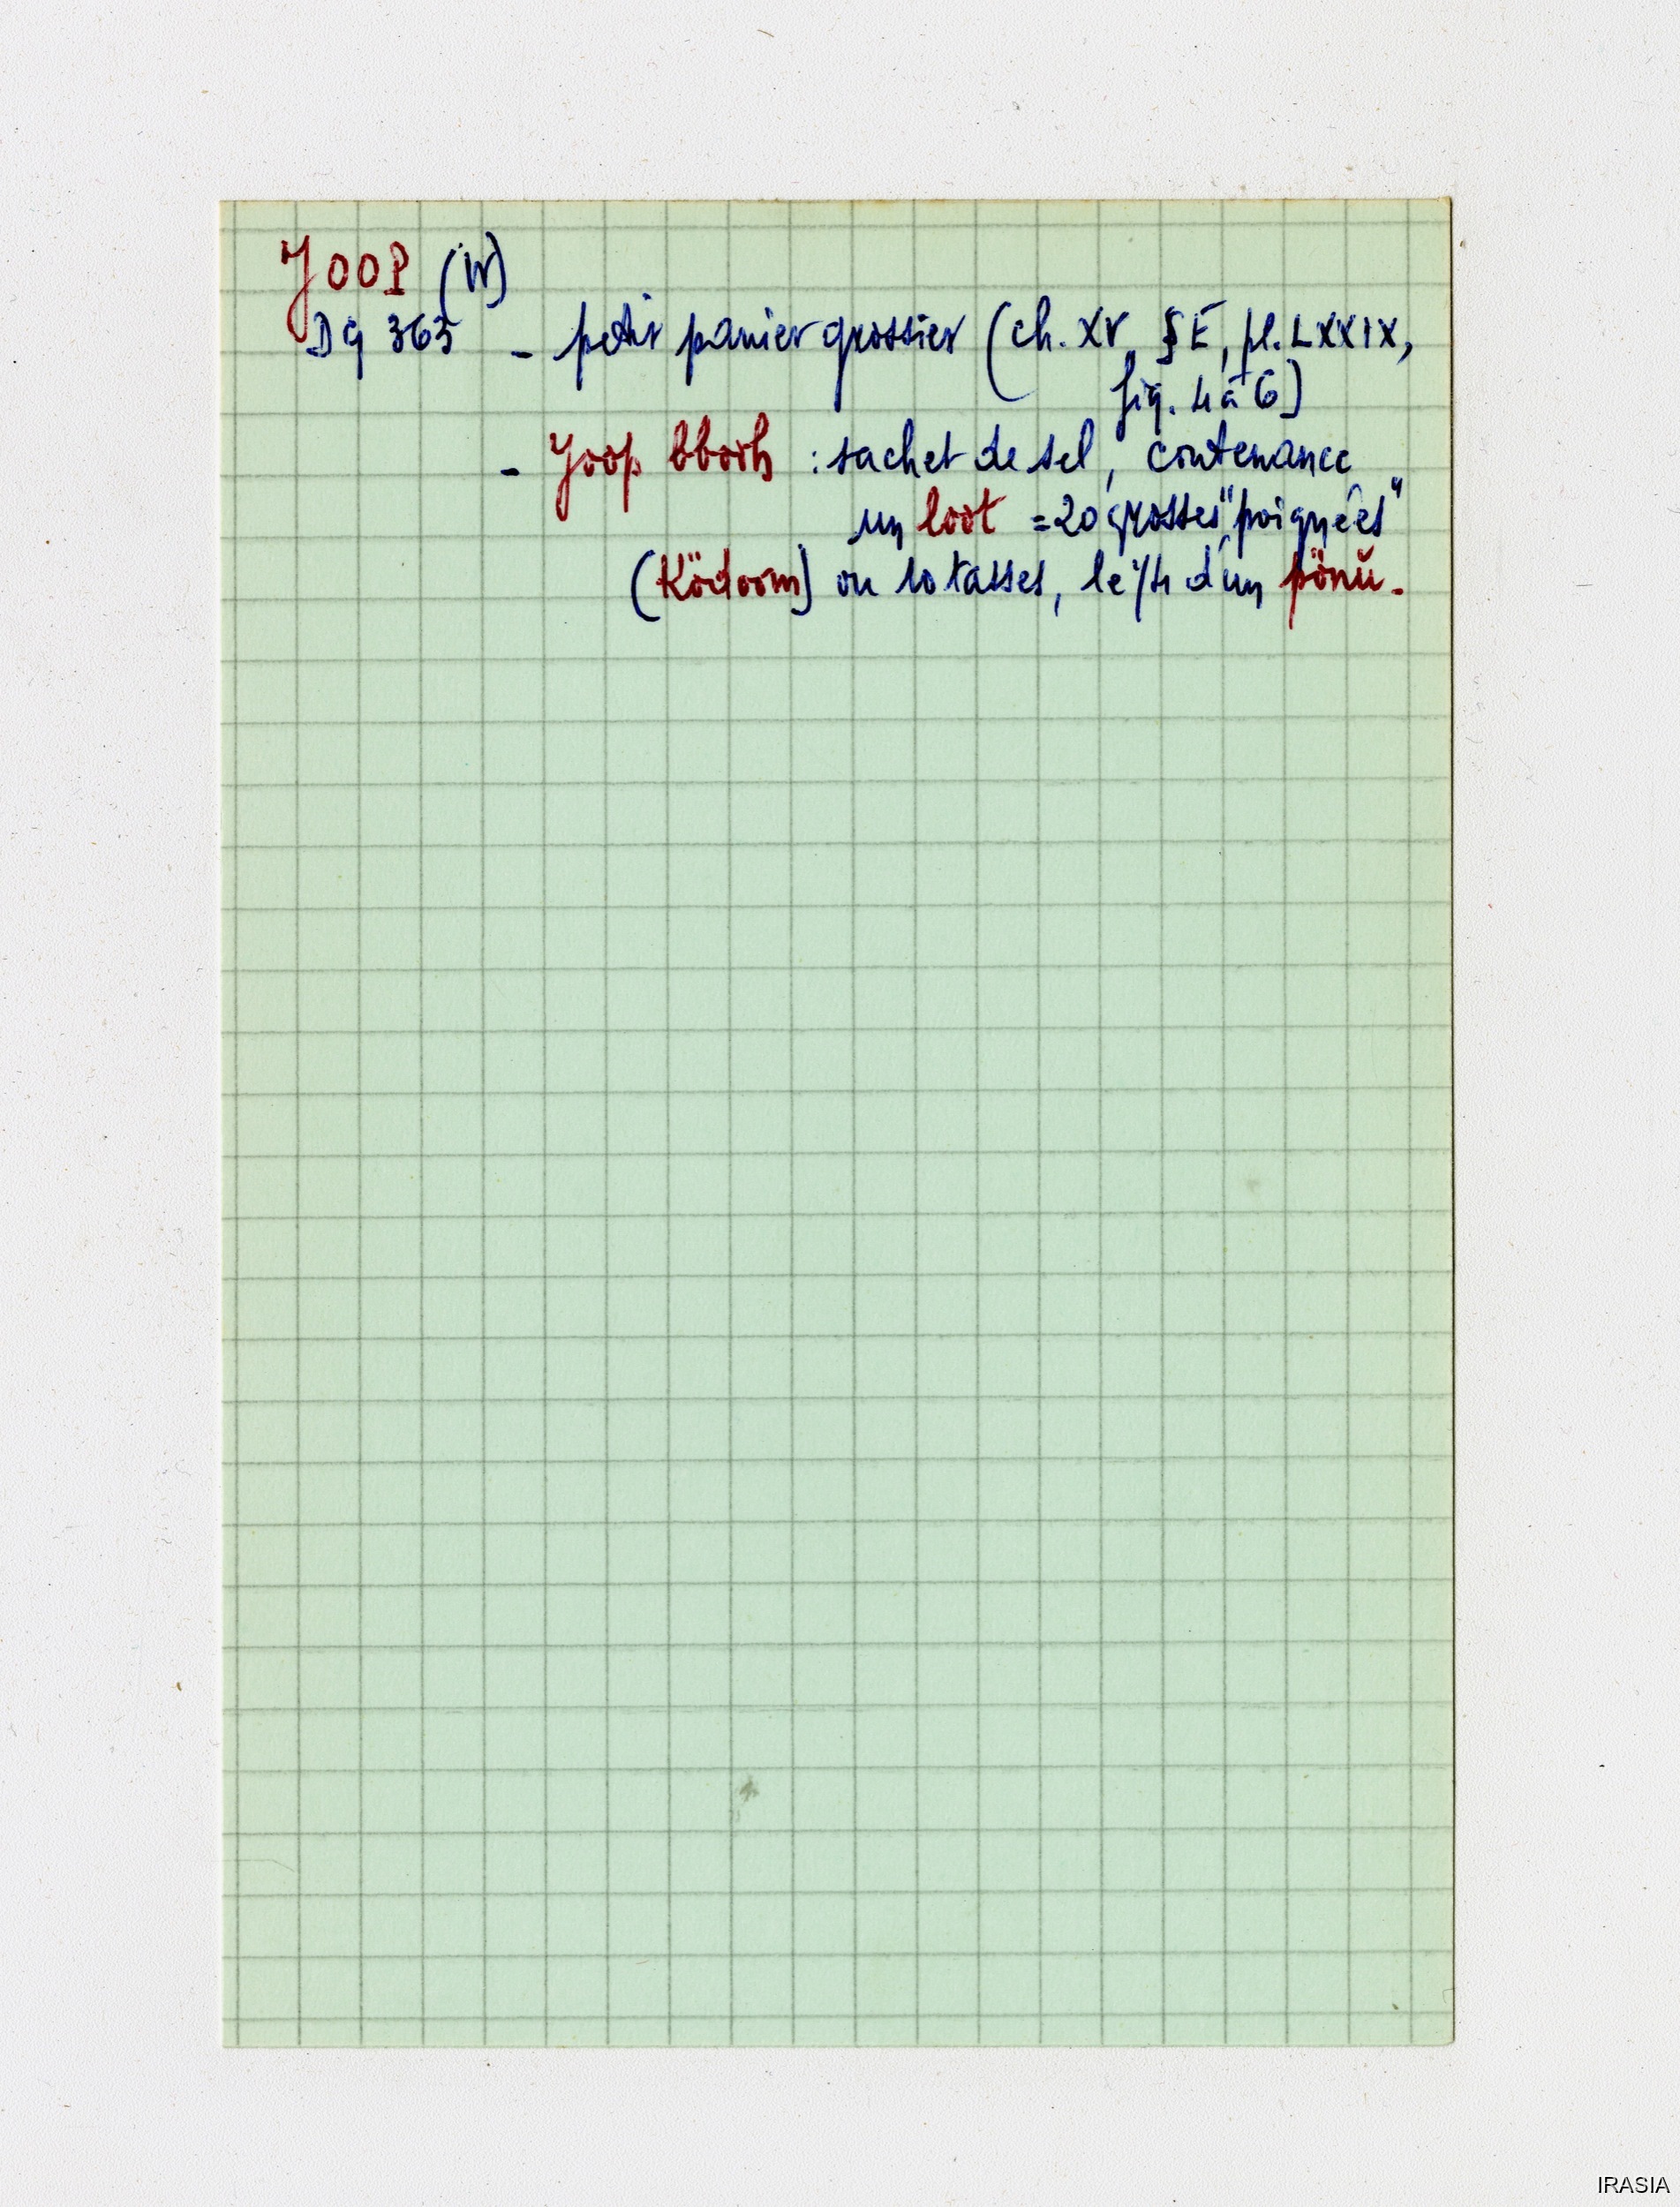 YOOP (W)
DG 365 - petit panier grossier (ch. XV, § E, pl. LXXIX,
fig. 4 à 6)
- Yoop bbooh : sachet de sel, contenance
un loot = 20 grosses "poignées"
(Ködoom) ou 10 tasses, le 1/4 d'un pönŭ.
IRASIA